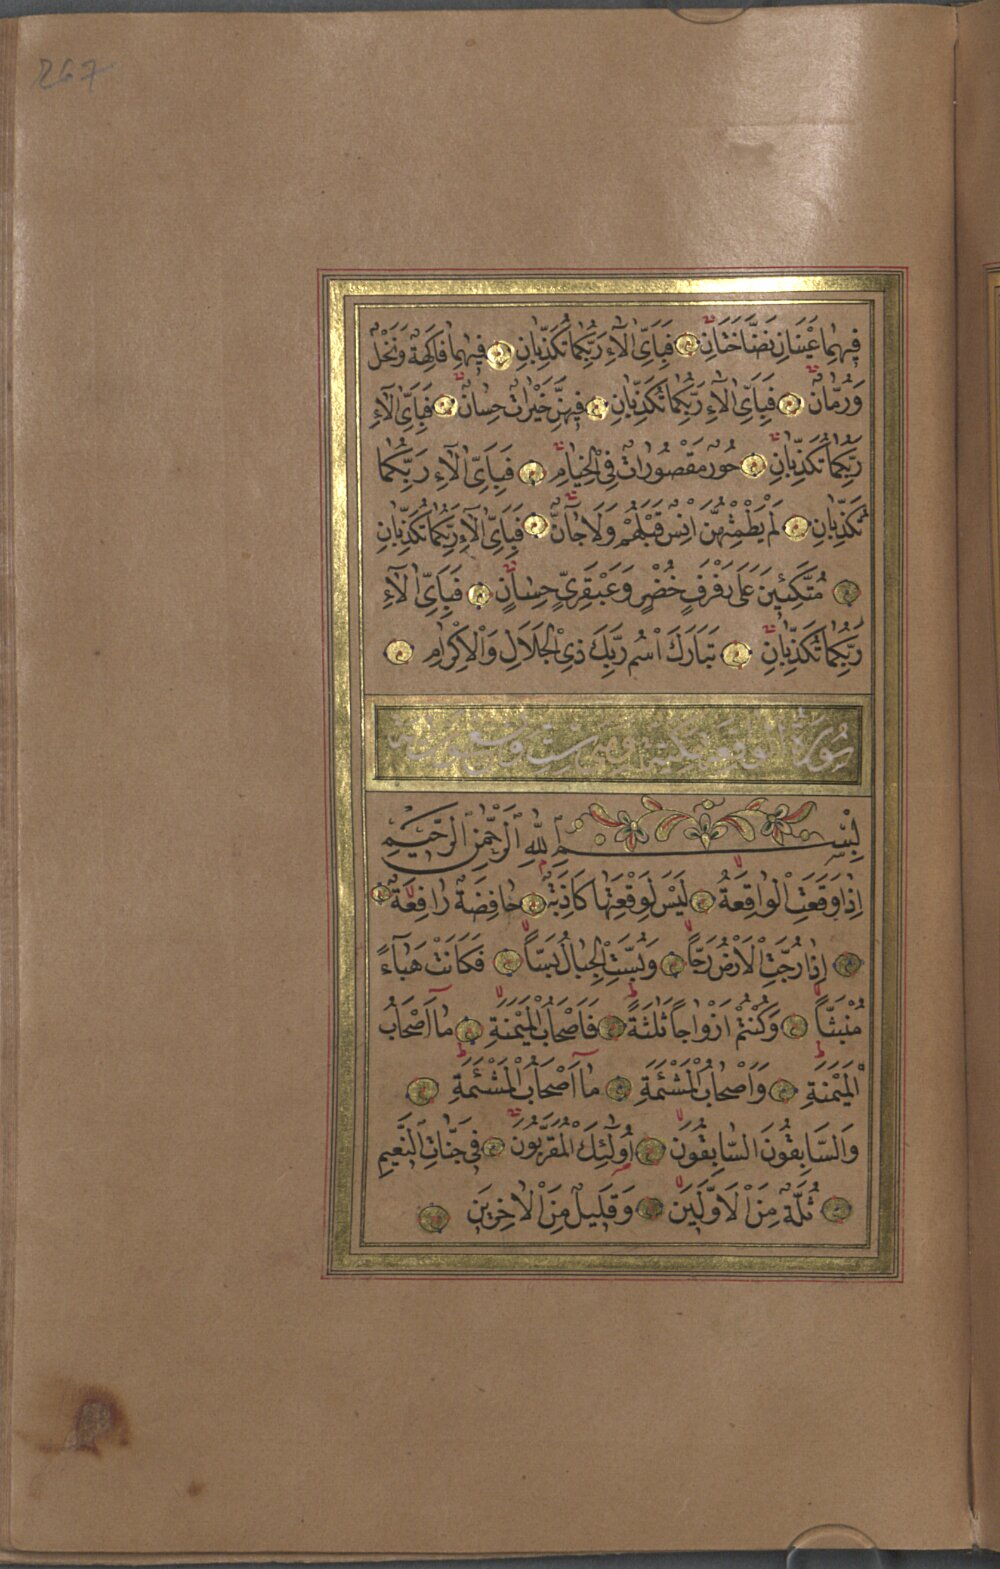 267
فِيهِمَا عَيْنَانِ نَضَّاخَتَانِ فَبِاَيِّ اٰلَاءِ رَبِّكُمَا تُكَذِّبَانِ فِيهِمَا فَاكِهَةٌ وَنَخْلٌ
وَرُمَّانٌ فَبِاَيِّ اٰلَاءِ رَبِّكُمَا تُكَذِّبَانِ فِيهِنَّ خَيْرَاتٌ حِسَانٌ فَبِاَيِّ اٰلَاءِ
رَبِّكُمَا تُكَذِّبَانِ حُورٌ مَقْصُورَاتٌ فِي الْخِيَامِ فَبِاَيِّ اٰلَاءِ رَبِّكُمَا
تُكَذِّبَانِ لَمْ يَطْمِثْهُنَّ اِنْسٌ قَبْلَهُمْ وَلَا جَانٌّ فَبِاَيِّ اٰلَاءِ رَبِّكُمَا تُكَذِّبَانِ
مُتَّكِـِٔينَ عَلٰى رَفْرَفٍ خُضْرٍ وَعَبْقَرِيٍّ حِسَانٍ فَبِاَيِّ اٰلَاءِ
رَبِّكُمَا تُكَذِّبَانِ تَبَارَكَ اسْمُ رَبِّكَ ذِي الْجَلَالِ وَالْاِكْرَامِ
سُورَةُ الواقعة مكية وهي ست وتسعون آية
بِسْمِ اللّٰهِ الرَّحْمٰنِ الرَّحِيمِ
اِذَا وَقَعَتِ الْوَاقِعَةُ لَيْسَ لِوَقْعَتِهَا كَاذِبَةٌ خَافِضَةٌ رَافِعَةٌ
اِذَا رُجَّتِ الْاَرْضُ رَجًّا وَبُسَّتِ الْجِبَالُ بَسًّا فَكَانَتْ هَبَاءً
مُنْبَثًّا وَكُنْتُمْ اَزْوَاجًا ثَلٰثَةً فَاَصْحَابُ الْمَيْمَنَةِ مَا اَصْحَابُ
الْمَيْمَنَةِ وَاَصْحَابُ الْمَشْـَٔمَةِ مَا اَصْحَابُ الْمَشْـَٔمَةِ
وَالسَّابِقُونَ السَّابِقُونَ اُولٰئِكَ الْمُقَرَّبُونَ فِي جَنَّاتِ النَّعِيمِ
ثُلَّةٌ مِنَ الْاَوَّلِينَ وَقَلِيلٌ مِنَ الْاٰخِرِينَ